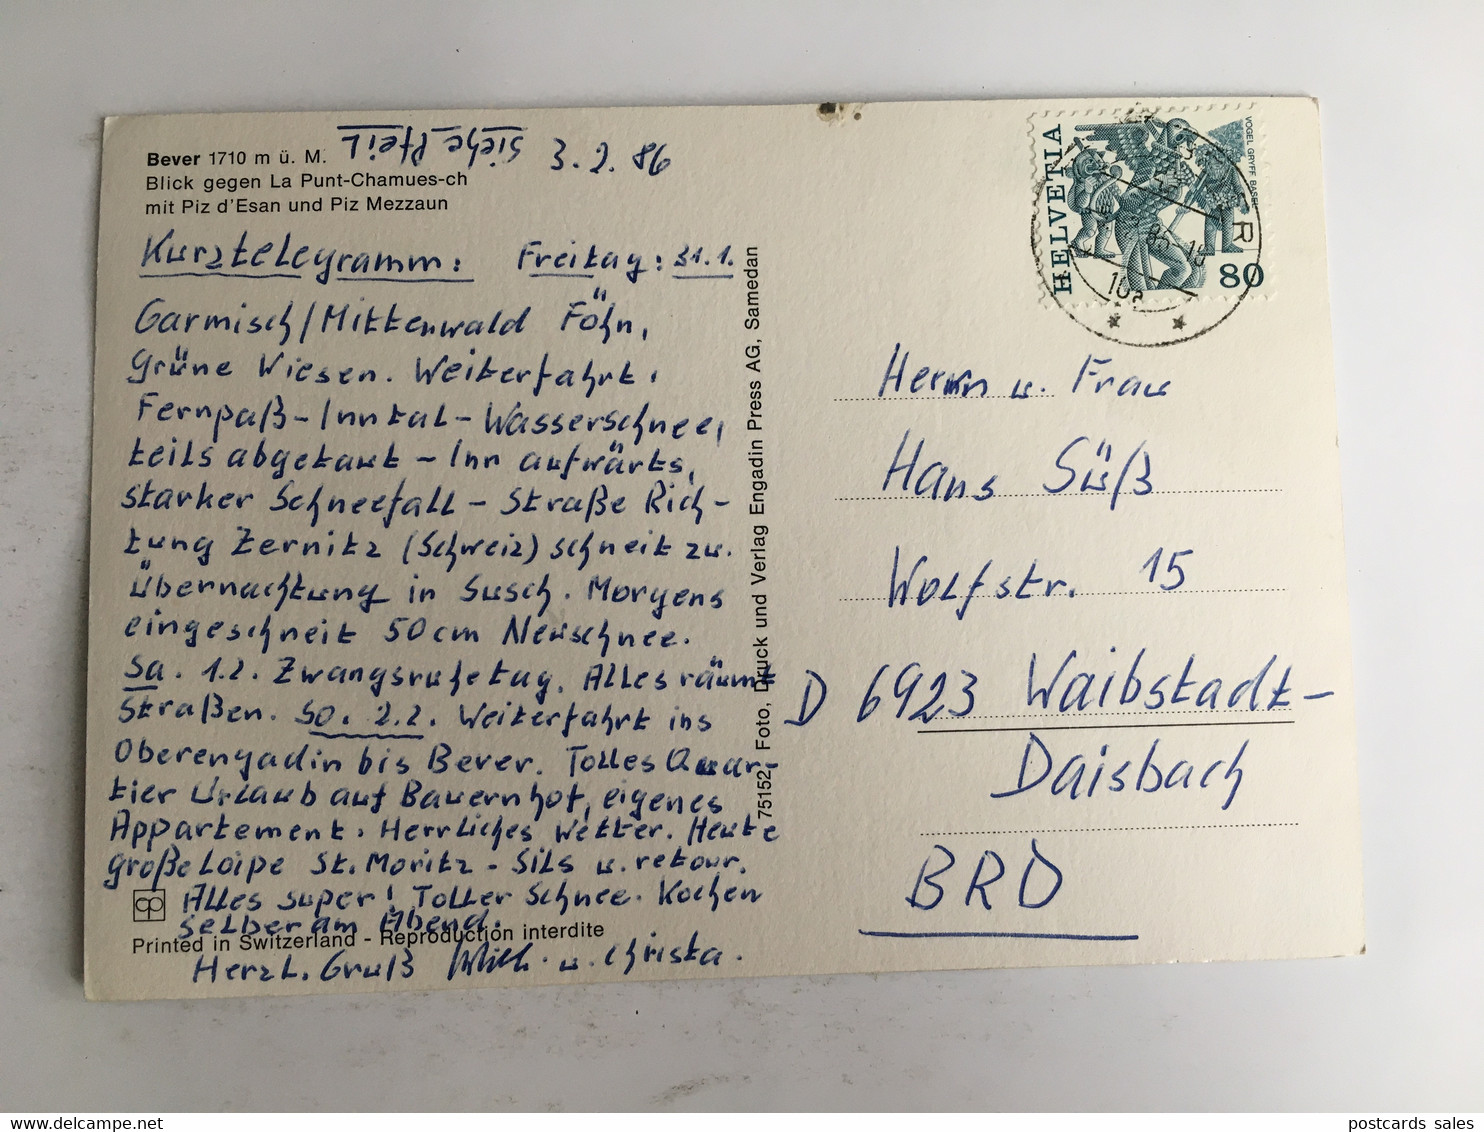 Bever 1710 m ü. M.
Siehe Pfeil
3.2.86
Blick gegen La Punt-Chamues-ch
mit Piz d'Esan und Piz Mezzaun
Kurztelegramm: Freitag: 31.1.
Garmisch/Mittenwald Föhn,
grüne Wiesen. Weiterfahrt:
Fernpaß-Inntal-Wasserschnee,
teils abgetaut - Inn aufwärts,
starker Schneefall - Straße Rich-
tung Zernitz (Schweiz) schneit zu.
Übernachtung in Susch. Morgens
eingeschneit 50cm Neuschnee.
Sa. 1.2. Zwangsruhetag. Alles räumt
Straßen. So. 2.2. Weiterfahrt ins
Oberengadin bis Bever. Tolles Quar-
tier Urlaub auf Bauernhof, eigenes
Appartement. Herrliches Wetter. Heute
große Loipe St. Moritz - Sils u. retour.
Alles super! Toller Schnee. Kochen
selber am Abend.
cp
Printed in Switzerland - Reproduction interdite
Herzl. Gruß u. Christa.
75152 Foto, Druck und Verlag Engadin Press AG, Samedan
HELVETIA
VOGEL GRYFF BASEL
80
Herrn u. Frau
Hans Süß
Wolfstr. 15
D 6923 Waibstadt-
Daisbach
BRD
postcards sales